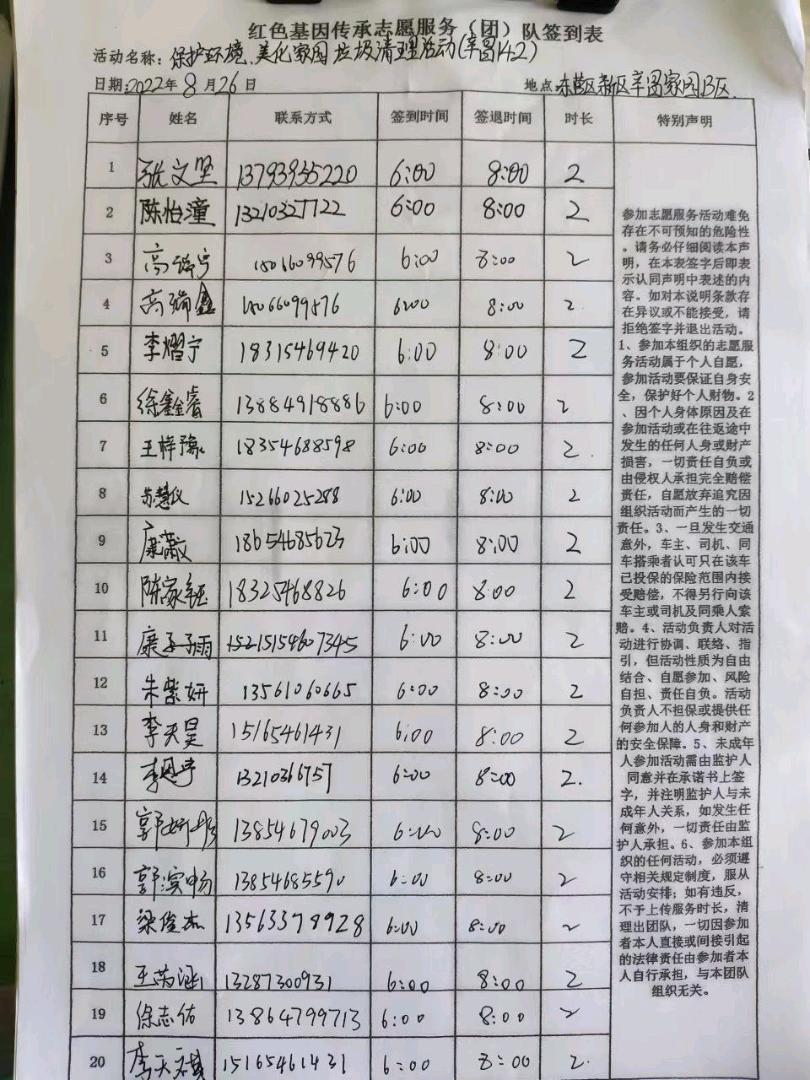 红色基因传承志愿服务（团）队签到表
活动名称：保护环境、美化家园垃圾清理活动(辛昌142)
日期：2022年8月26日 地点：东营区新区辛昌家园B区
序号 姓名 联系方式 签到时间 签退时间 时长 特别声明
1 张文坚 13793935220 6:00 8:00 2
2 陈怡潼 13210327122 6:00 8:00 2
3 15066099576 6:00 8:00 2
4 高瑞鑫 15066099576 6:00 8:00 2
5 李熠宁 18315469420 6:00 8:00 2
6 徐鑫睿 13884918886 6:00 8:00 2
7 王梓豫 18354688598 6:00 8:00 2
8 苏慧仪 15266025288 6:00 8:00 2
9 康 18654685623 6:00 8:00 2
10 陈家钰 18325468826 6:00 8:00 2
11 康子雨 6:00 8:00 2
12 朱紫妍 13561060665 6:00 8:00 2
13 李天昊 15165461431 6:00 8:00 2
14 李 13210366757 6:00 8:00 2.
15 郭妍彤 13854679003 6:00 8:00 2
16 郭滨旸 13854685590 6:00 8:00 2
17 梁俊杰 13563378928 6:00 8:00 2
18 王芮涵 13287300931 6:00 8:00 2
19 徐志佑 13864799713 6:00 8:00 2
20 李天祺 15165461431 6:00 8:00 2.
参加志愿服务活动难免
存在不可预知的危险性
。请务必仔细阅读本声
明，在本表签字后即表
示认同声明中表述的内
容。如对本说明条款存
在异议或不能接受，请
拒绝签字并退出活动。
1、参加本组织的志愿服
务活动属于个人自愿，
参加活动要保证自身安
全，保护好个人财物。2
、因个人身体原因及在
参加活动或在往返途中
发生的任何人身或财产
损害，一切责任自负或
由侵权人承担完全赔偿
责任，自愿放弃追究因
组织活动而产生的一切
责任。3、一旦发生交通
意外，车主、司机、同
车搭乘者认可只在该车
已投保的保险范围内接
受赔偿，不得另行向该
车主或司机及同乘人索
赔。4、活动负责人对活
动进行协调、联络、指
引，但活动性质为自由
结合、自愿参加、风险
自担、责任自负。活动
负责人不担保或提供任
何参加人的人身和财产
的安全保障。5、未成年
人参加活动需由监护人
同意并在承诺书上签
字，并注明监护人与未
成年人关系，如发生任
何意外，一切责任由监
护人承担。6、参加本组
织的任何活动，必须遵
守相关规定制度，服从
活动安排；如有违反，
不予上传服务时长，清
理出团队，一切因参加
者本人直接或间接引起
的法律责任由参加者本
人自行承担，与本团队
组织无关。